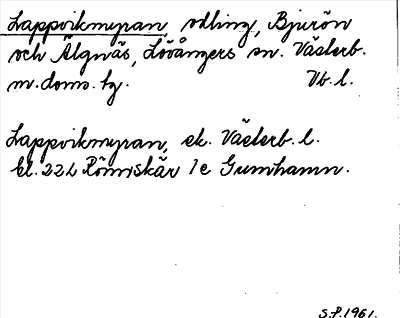 Lappvikmyran, odling, Bjurön
och Älgnäs, Lövångers sn. Västerb.
m. doms. hg. Vb. l.
Lappvikmyran, ek. Västerb. l.
bl. 22L Rönnskär 1e Gumhamn.
S.P. 1961.